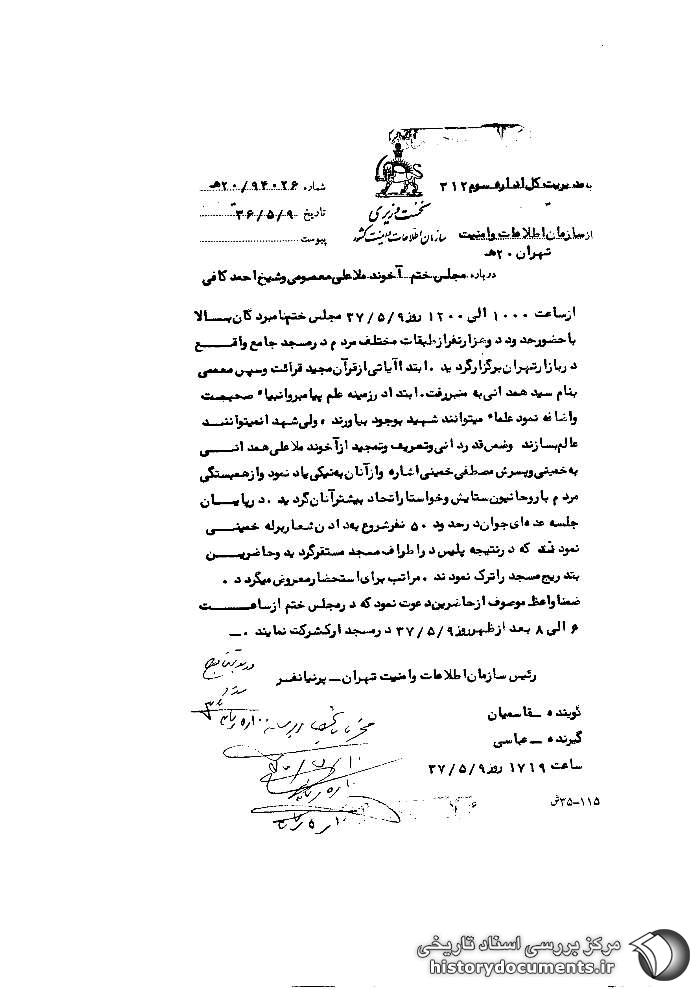 به مدیریت کل اداره سوم ۳۱۲
شماره ۹۴۰۲۶/ ۲۰هـ
نخست وزیری
تاریخ ۳۶/۵/۹
از سازمان اطلاعات و امنیت
سازمان اطلاعات و امنیت کشور
پیوست
تهران ۲۰هـ
درباره مجلس ختم آخوند ملاعلی معصومی و شیخ احمد کافی
از ساعت ۱۰۰۰ الی ۱۲۰۰ روز ۳۷/۵/۹ مجلس ختم نامبردگان بالا
با حضور حدود دو هزار نفر از طبقات مختلف مردم در مسجد جامع واقع
در بازار تهران برگزار گردید . ابتدا آیاتی از قرآن مجید قرائت و سپس معممی
بنام سید همدانی به منبر رفت. ابتدا در زمینه علم پیامبر و انبیاء صحبت
و اضافه نمود علماء میتوانند شهید بوجود بیاورند ، ولی شهدا نمیتوانند
عالم بسازند وضمن قدردانی و تعریف و تمجید از آخوند ملاعلی همدانی
به خمینی و پسرش مصطفی خمینی اشاره و از آنان به نیکی یاد نمود و از همبستگی
مردم با روحانیون ستایش و خواستار اتحاد بیشتر آنان گردید . در پایان
جلسه عده‌ای جوان در حدود ۵۰ نفر شروع به دادن شعار برله خمینی
نمودند که در نتیجه پلیس در اطراف مسجد مستقر گردید و حاضرین
بتدریج مسجد را ترک نمودند . مراتب برای استحضار معروض میگردد .
ضمنا واعظ موصوف از حاضرین دعوت نمود که در مجلس ختم از ساعت
۶ الی ۸ بعد از ظهر روز ۳۷/۵/۹ در مسجد ارک شرکت نمایند . ـ
رئیس سازمان اطلاعات و امنیت تهران ـ پرنیانفر
گوینده ـ قاسمیان
گیرنده ـ عباسی
ساعت ۱۷۱۹ روز ۳۷/۵/۹
۳۵-۱۱۵ش
مرکز بررسی اسناد تاریخی
historydocuments.ir